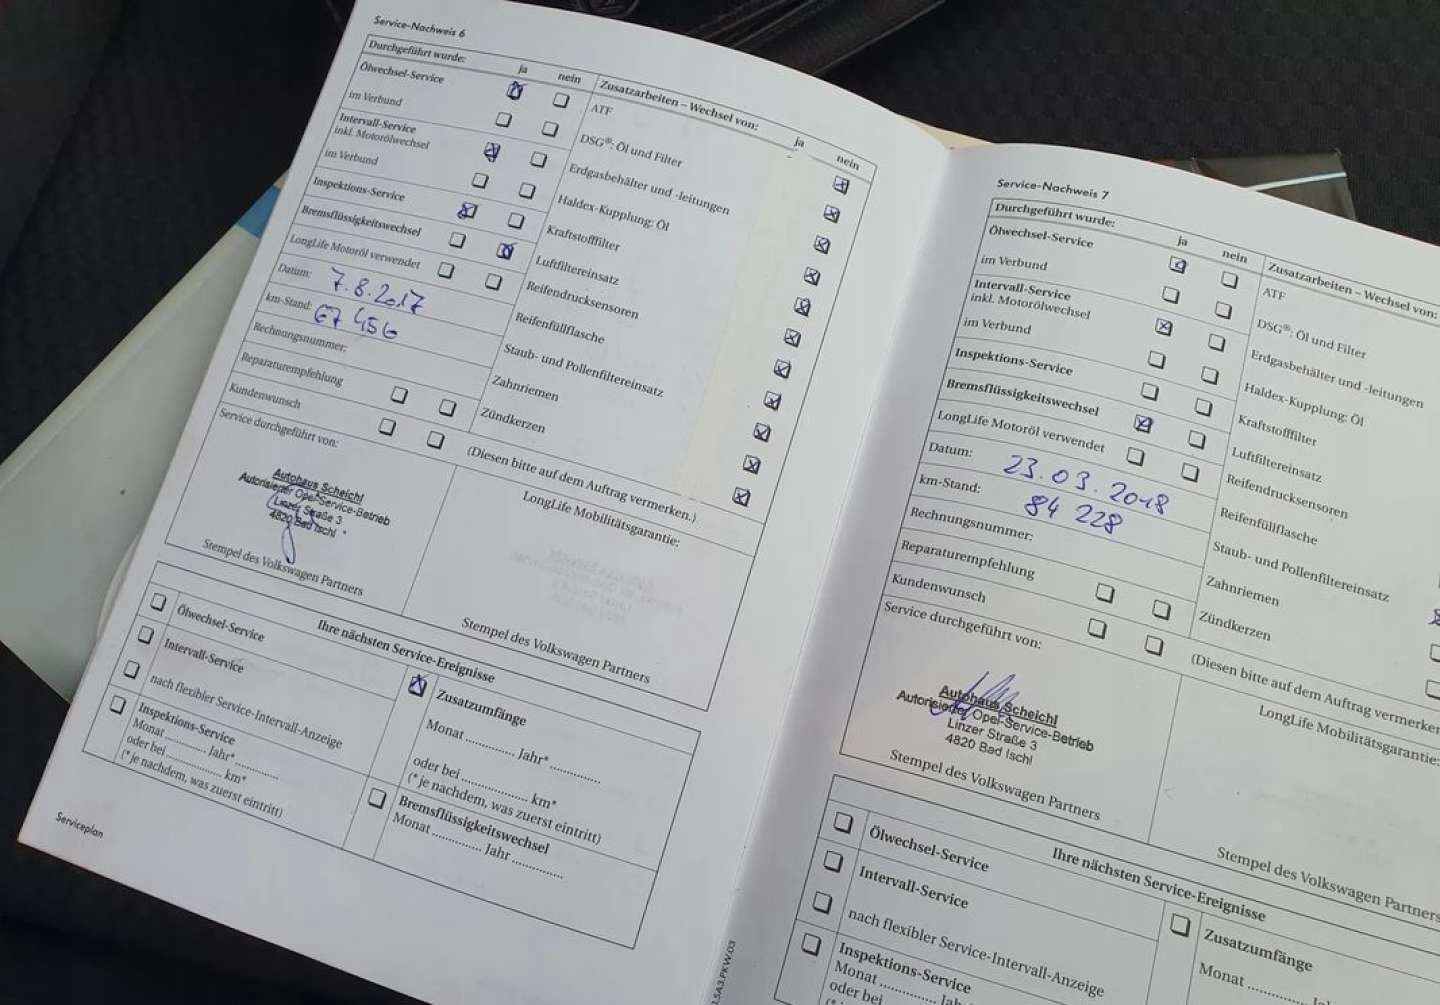 Service-Nachweis 6
Durchgeführt wurde: ja nein
Ölwechsel-Service
im Verbund
Intervall-Service
inkl. Motorölwechsel
im Verbund
Inspektions-Service
Bremsflüssigkeitswechsel
LongLife Motoröl verwendet
Datum: 7.8.2017
km-Stand: 67 456
Rechnungsnummer:
Reparaturempfehlung
Kundenwunsch
Service durchgeführt von:
Autohaus Scheichl
Autorisierter Opel-Service-Betrieb
Linzer Straße 3
4820 Bad Ischl
Stempel des Volkswagen Partners
Zusatzarbeiten – Wechsel von: ja nein
ATF
DSG®: Öl und Filter
Erdgasbehälter und -leitungen
Haldex-Kupplung: Öl
Kraftstofffilter
Luftfiltereinsatz
Reifendrucksensoren
Reifenfüllflasche
Staub- und Pollenfiltereinsatz
Zahnriemen
Zündkerzen
(Diesen bitte auf dem Auftrag vermerken.)
LongLife Mobilitätsgarantie:
Stempel des Volkswagen Partners
Ihre nächsten Service-Ereignisse
Ölwechsel-Service
Intervall-Service
nach flexibler Service-Intervall-Anzeige
Inspektions-Service
Monat ........... Jahr* ...........
oder bei ................... km*
(* je nachdem, was zuerst eintritt)
Zusatzumfänge
Monat ............. Jahr* .............
oder bei .................. km*
(* je nachdem, was zuerst eintritt)
Bremsflüssigkeitswechsel
Monat ............. Jahr .............
Serviceplan
Service-Nachweis 7
Durchgeführt wurde: ja nein
Ölwechsel-Service
im Verbund
Intervall-Service
inkl. Motorölwechsel
im Verbund
Inspektions-Service
Bremsflüssigkeitswechsel
LongLife Motoröl verwendet
Datum: 23.03.2018
km-Stand: 84 228
Rechnungsnummer:
Reparaturempfehlung
Kundenwunsch
Service durchgeführt von:
Autohaus Scheichl
Autorisierter Opel-Service-Betrieb
Linzer Straße 3
4820 Bad Ischl
Stempel des Volkswagen Partners
Zusatzarbeiten – Wechsel von:
ATF
DSG®: Öl und Filter
Erdgasbehälter und -leitungen
Haldex-Kupplung: Öl
Kraftstofffilter
Luftfiltereinsatz
Reifendrucksensoren
Reifenfüllflasche
Staub- und Pollenfiltereinsatz
Zahnriemen
Zündkerzen
(Diesen bitte auf dem Auftrag vermerken
LongLife Mobilitätsgarantie:
Stempel des Volkswagen Partners
Ihre nächsten Service-Ereignisse
Ölwechsel-Service
Intervall-Service
nach flexibler Service-Intervall-Anzeige
Inspektions-Service
Monat ........... Jahr* ...........
oder bei
Zusatzumfänge
Monat